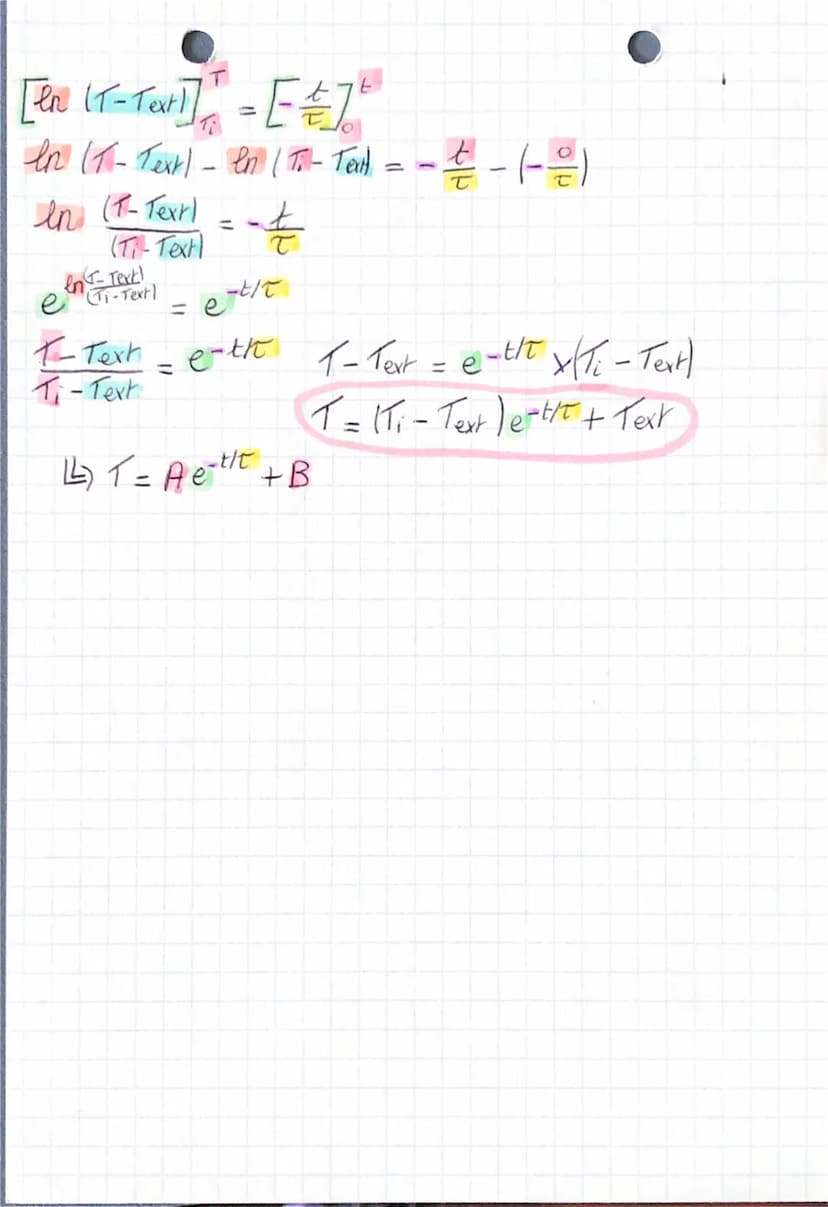 [ln (T-Text)]_{Ti}^{T} = [-t/τ]_{0}^{t}
ln (T-Text) - ln (Ti-Text) = -t/τ - (-0/τ)
ln (T-Text)/(Ti-Text) = -t/τ
e^{ln (T-Text)/(Ti-Text)} = e^{-t/τ}
(T-Text)/(Ti-Text) = e^{-t/τ} T-Text = e^{-t/τ} x(Ti-Text)
T = (Ti-Text)e^{-t/τ} + Text
↳ T = Ae^{-t/τ} + B